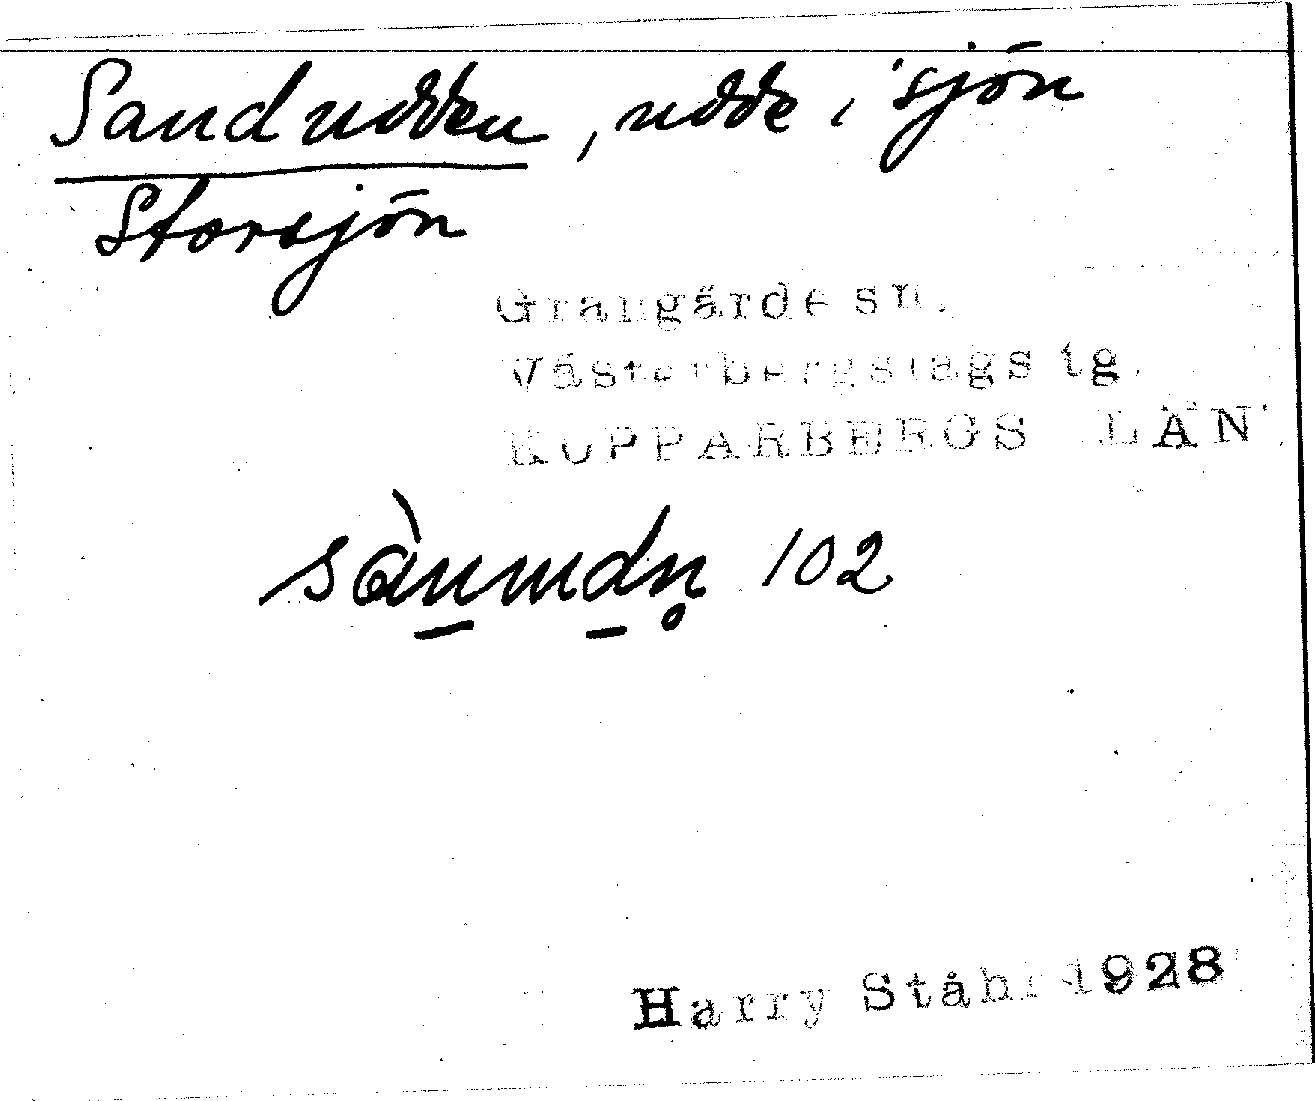 Sandudden, udde i sjön
Storsjön
Grangärde sn.
Västerbergslags tg.
KOPPARBERGS LÄN.
102
Harry Ståhl 1928